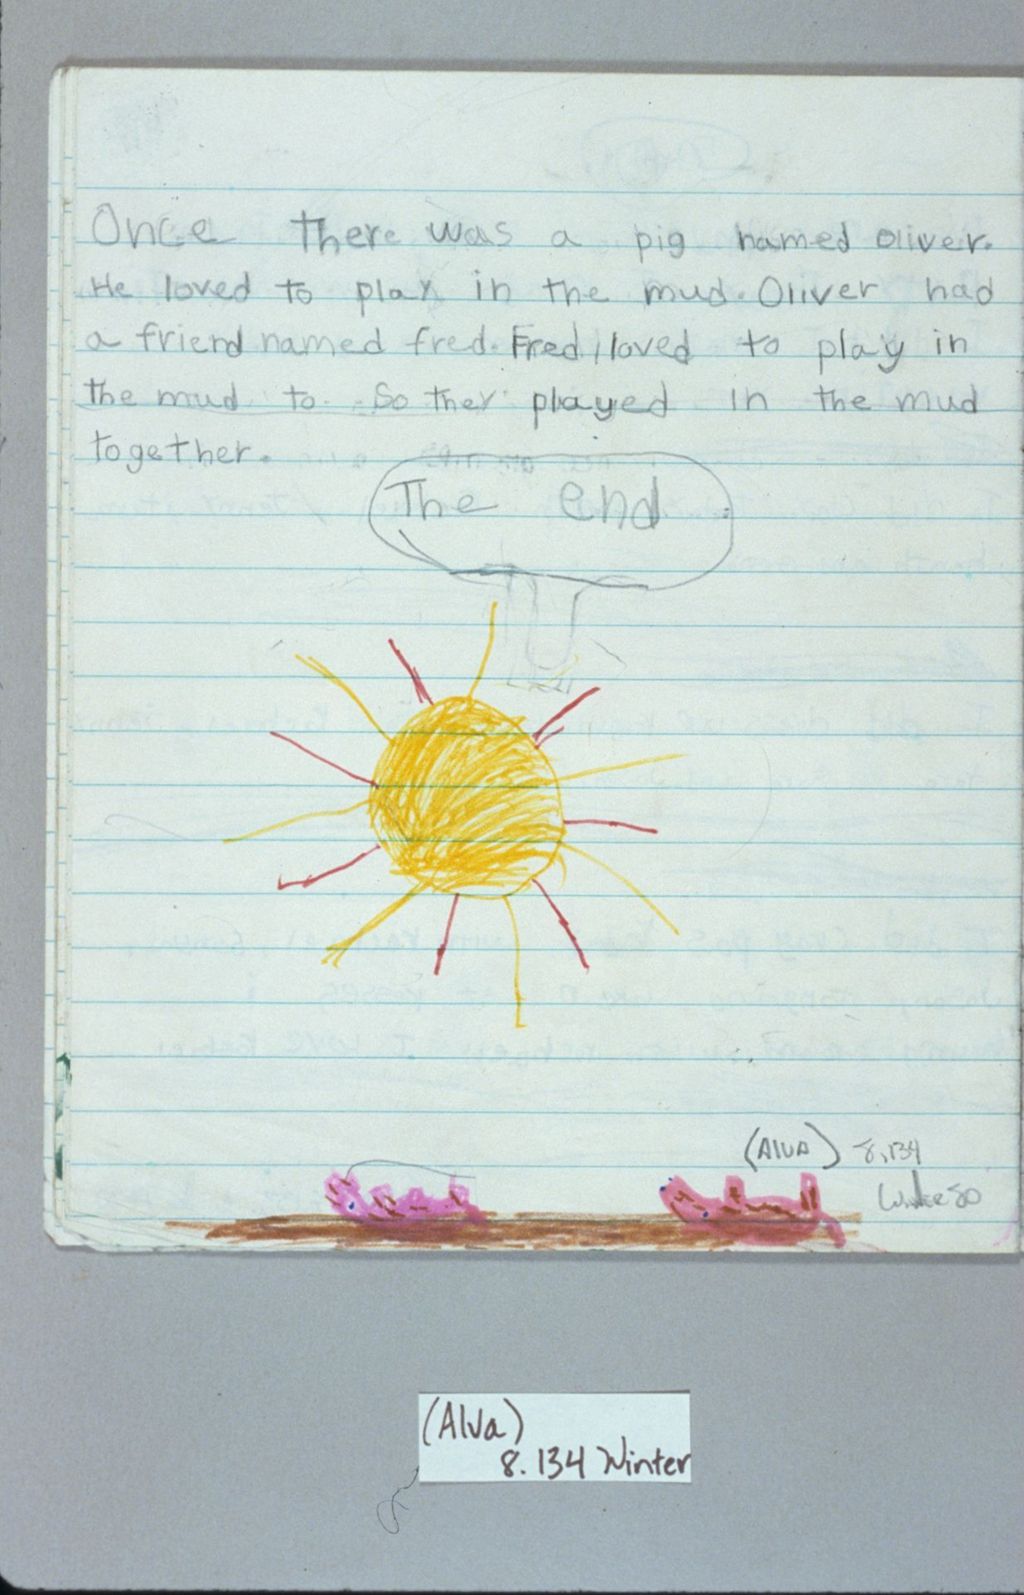 Once there was a pig named Oliver.
He loved to play in the mud. Oliver had
a friend named fred. Fred loved to play in
the mud to. So they played in the mud
together.
The end
(Alva) 8.134
(Alva)
8.134 Winter